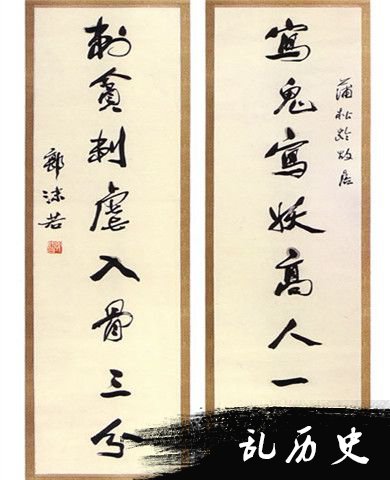 蒲松龄故居
寫鬼寫妖高人一
刺貪刺虐入骨三分
郭沫若
乱历史